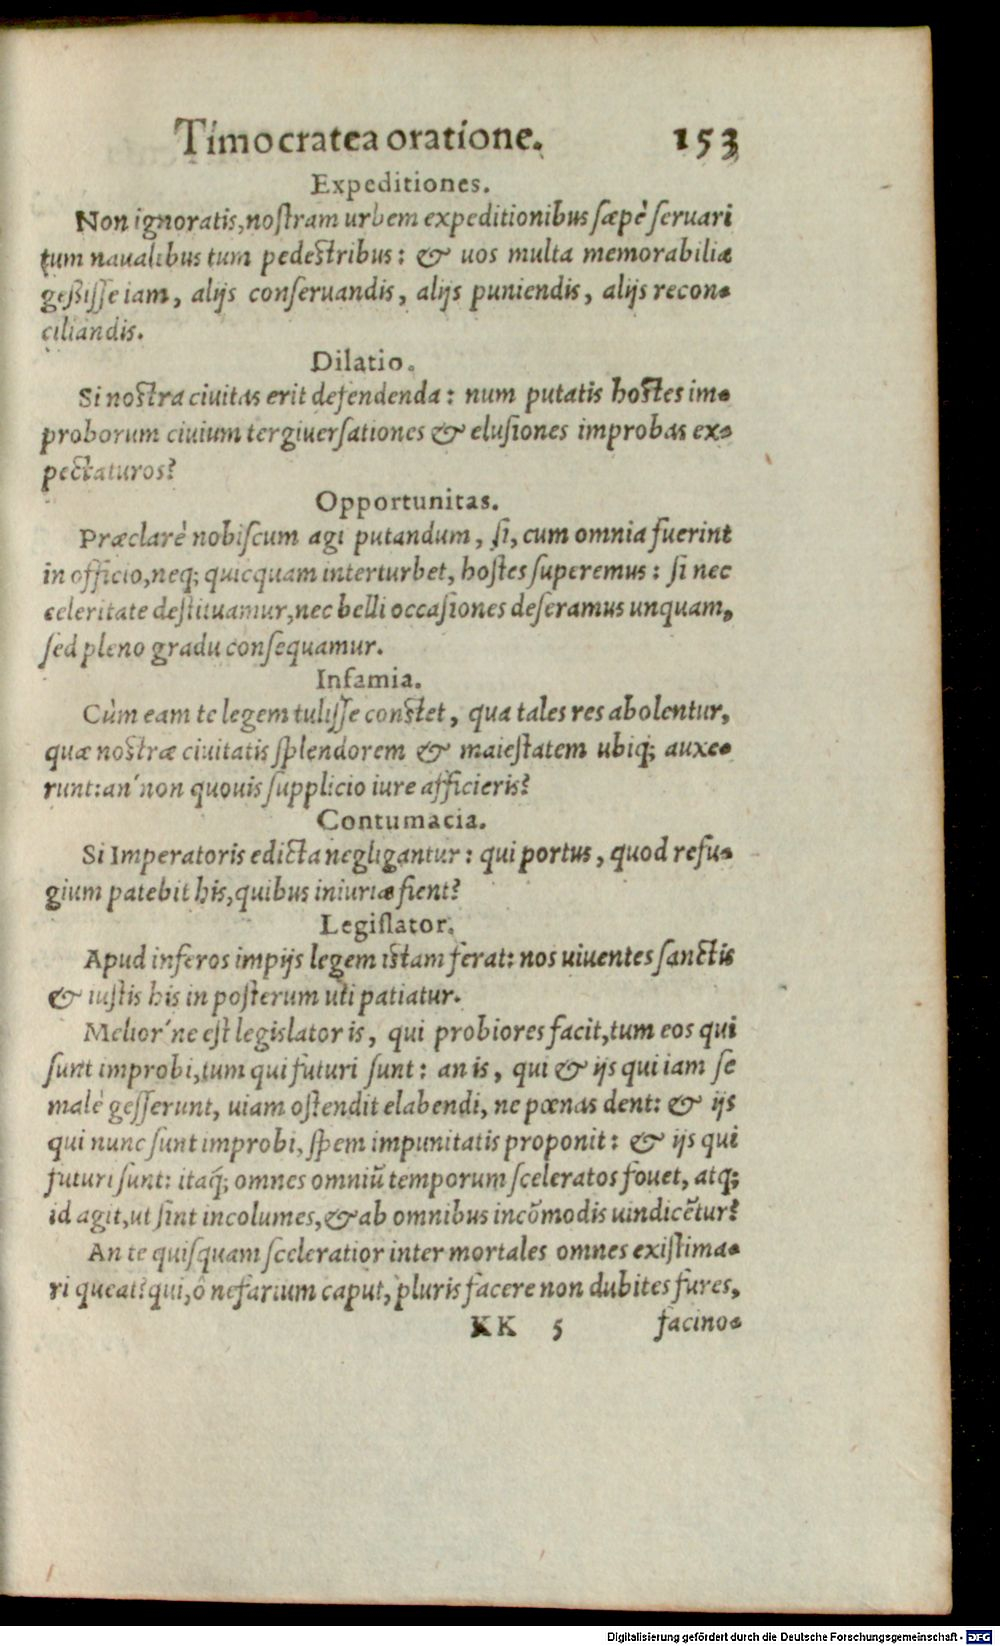 Timocratea oratione. 153
Expeditiones.
Non ignoratis, nostram urbem expeditionibus sæpè seruari
tum naualibus tum pedestribus: & uos multa memorabilia
geßisse iam, alijs conseruandis, alijs puniendis, alijs recon-
ciliandis.
Dilatio.
Si nostra ciuitas erit defendenda: num putatis hostes im-
proborum ciuium tergiuersationes & elusiones improbas ex-
pectaturos?
Opportunitas.
Præclarè nobiscum agi putandum, si, cum omnia fuerint
in officio, neq; quicquam interturbet, hostes superemus: si nec
celeritate destituamur, nec belli occasiones deseramus unquam,
sed pleno gradu consequamur.
Infamia.
Cùm eam te legem tulisse constet, qua tales res abolentur,
quæ nostræ ciuitatis splendorem & maiestatem ubiq; auxe-
runt: an´ non quouis supplicio iure afficieris?
Contumacia.
Si Imperatoris edicta negligantur: qui portus, quod refu-
gium patebit his, quibus iniuriæ fient?
Legislator.
Apud inferos impijs legem istam ferat: nos uiuentes sanctis
& iustis his in posterum uti patiatur.
Melior´ne est legislator is, qui probiores facit, tum eos qui
sunt improbi, tum qui futuri sunt: an is, qui & ijs qui iam se
malè gesserunt, uiam ostendit elabendi, ne pœnas dent: & ijs
qui nunc sunt improbi, spem impunitatis proponit: & ijs qui
futuri sunt: itaq́; omnes omniũ temporum sceleratos fouet, atq;
id agit, ut sint incolumes, & ab omnibus incõmodis uindicẽtur?
An te quisquam sceleratior inter mortales omnes existima-
ri queat? qui, ô nefarium caput, pluris facere non dubites fures,
KK 5 facino-
Digitalisierung gefördert durch die Deutsche Forschungsgemeinschaft - DFG